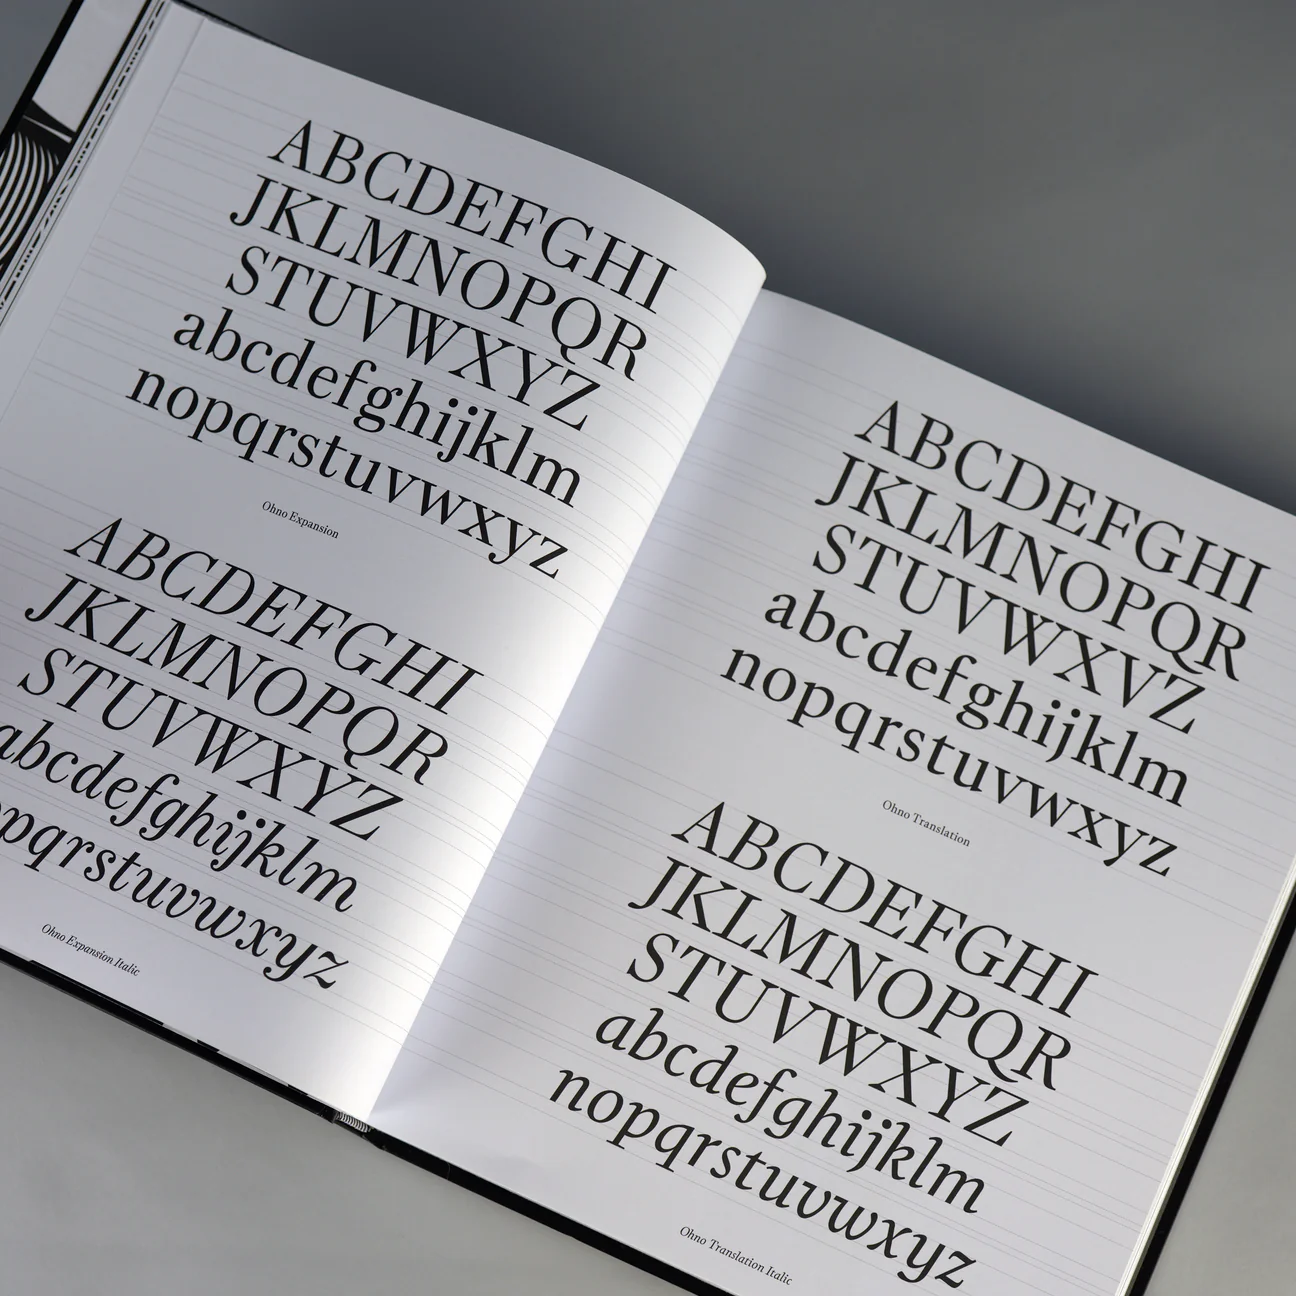 ABCDEFGHI
JKLMNOPQR
STUVWXYZ
abcdefghijklm
nopqrstuvwxyz
Ohno Expansion
ABCDEFGHI
JKLMNOPQR
STUVWXYZ
abcdefghijklm
opqrstuvwxyz
Ohno Expansion Italic
ABCDEFGHI
JKLMNOPQR
STUVWXVZ
abcdefghijklm
nopqrstuvwxyz
Ohno Translation
ABCDEFGHI
JKLMNOPQR
STUVWXYZ
abcdefghijklm
nopqrstuvwxyz
Ohno Translation Italic